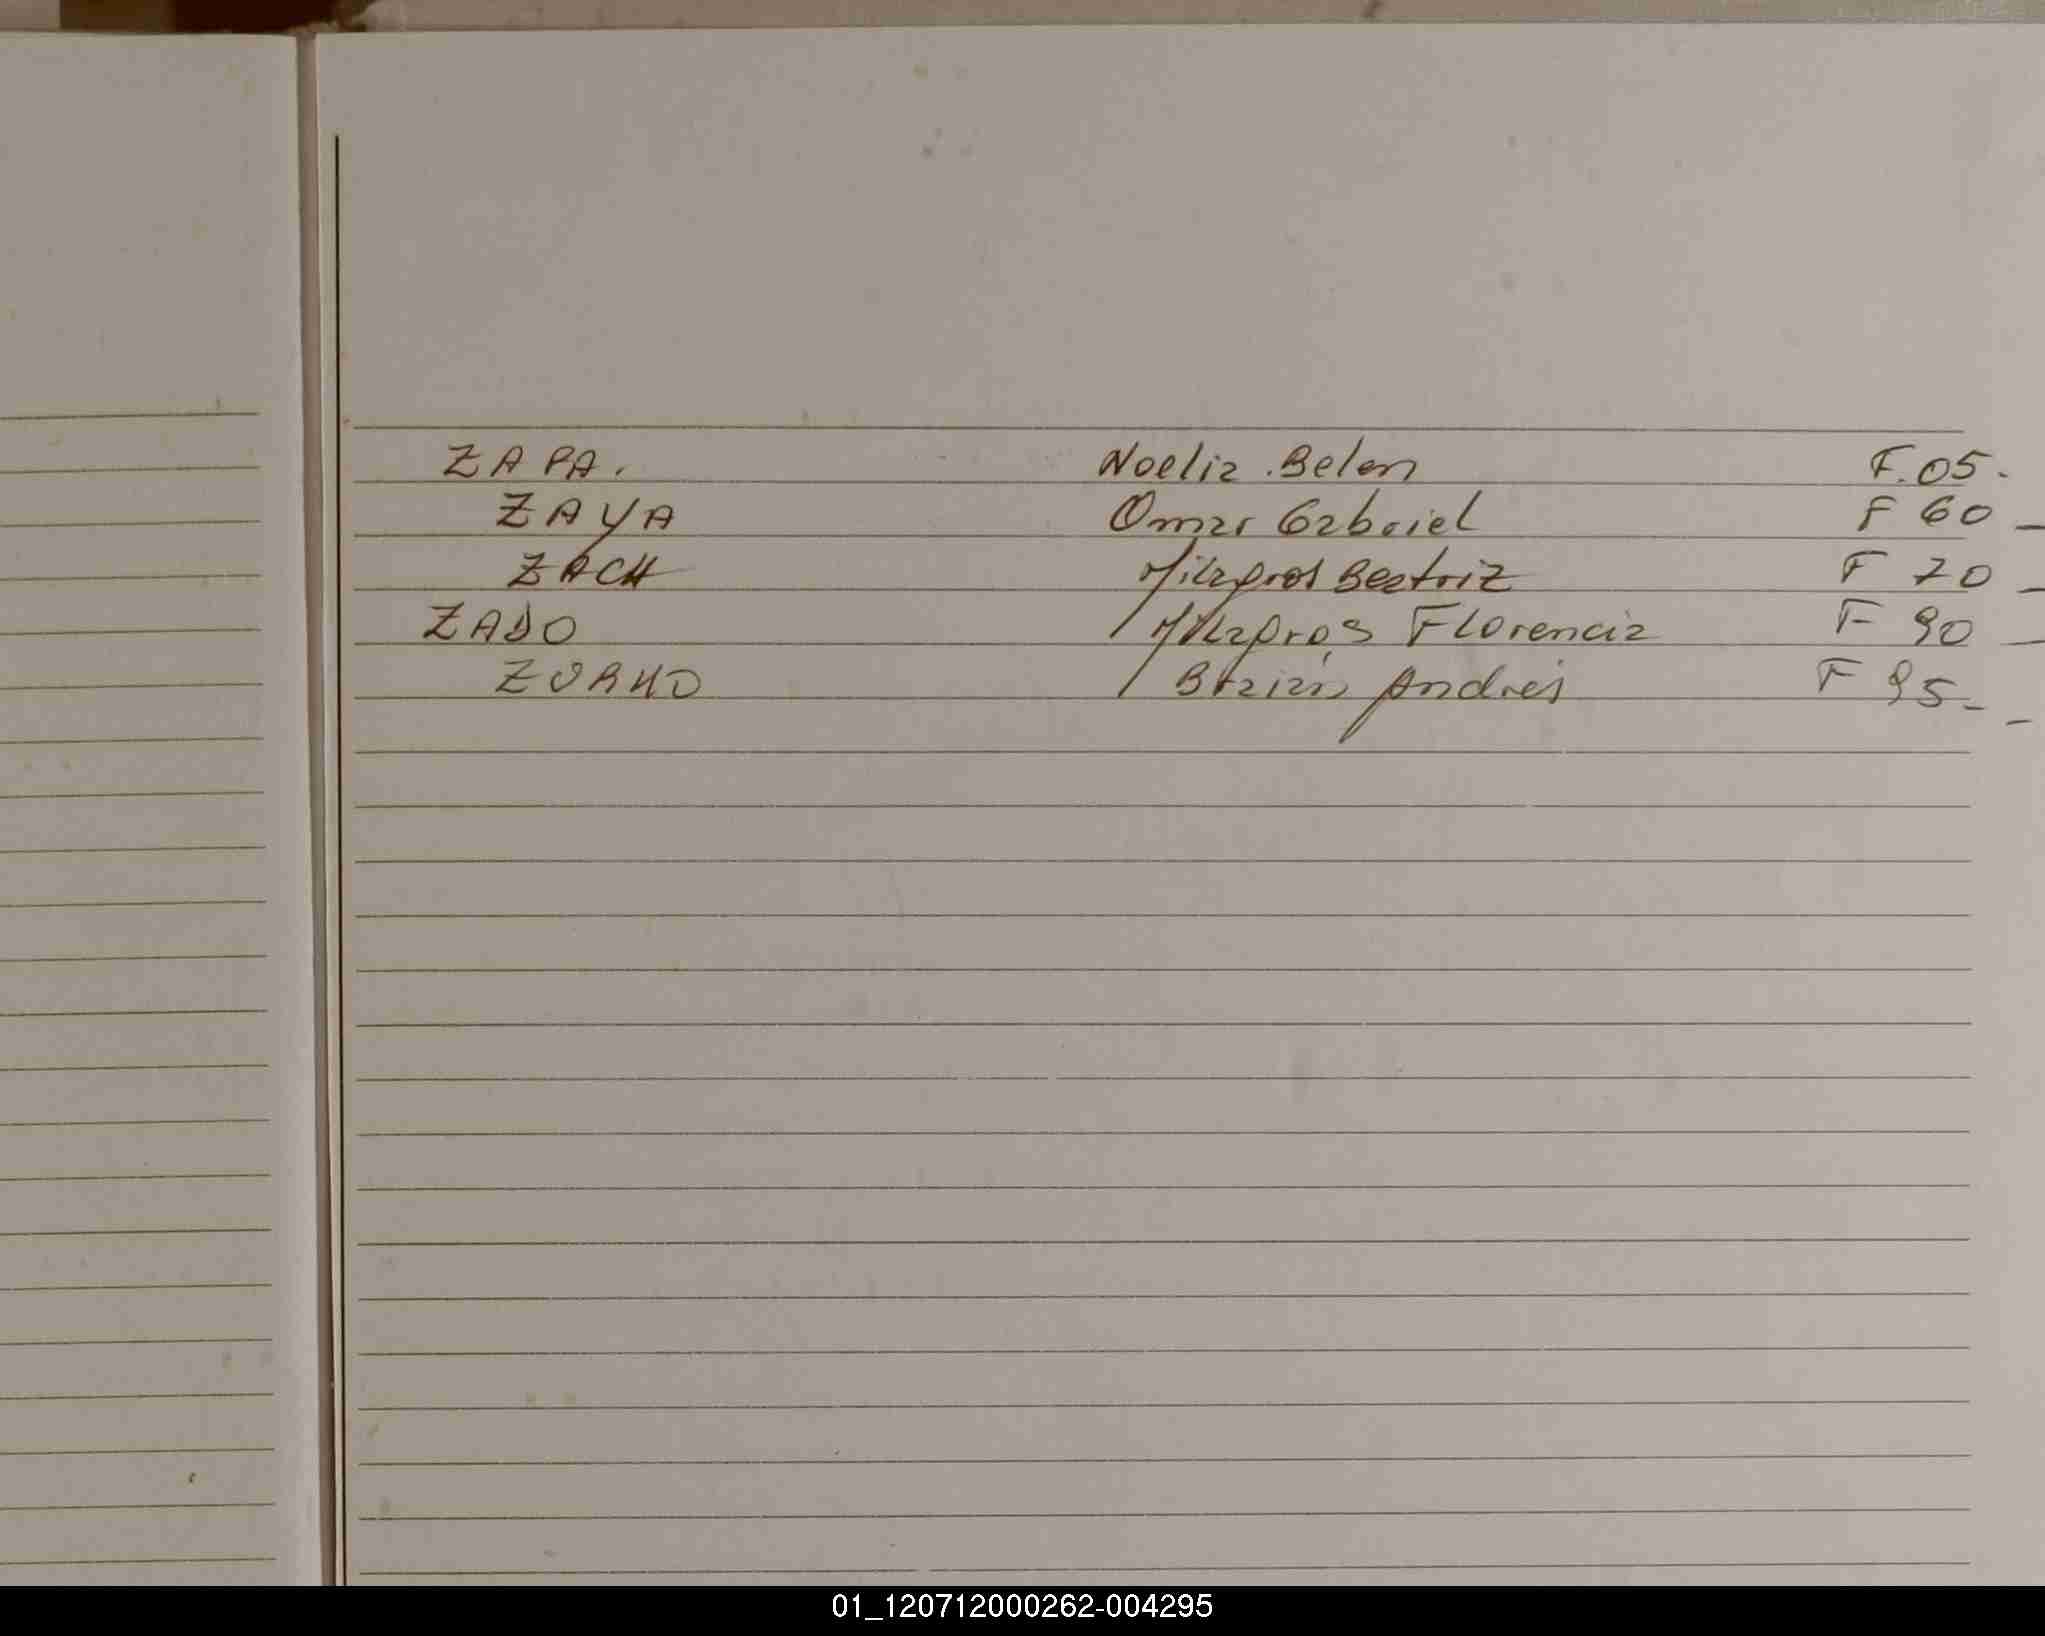 ZAPA. Noelia Belen F. 05.
ZAYA Omar Gabriel F 60 _
ZACH Milagros Beatriz F 70 _
ZADO Milagros Florencia F 90 _
Andrés F 95 - -
01_120712000262-004295